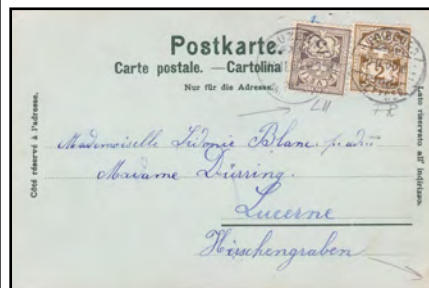 Postkarte.
Carte postale. — Cartolina
Nur für die Adresse.
Côté réservé à l'adresse.
Lato riservato all' indirizzo.
Mademoiselle Sidonie Blanc
Madame Dürring.
Lucerne
Hirschengraben